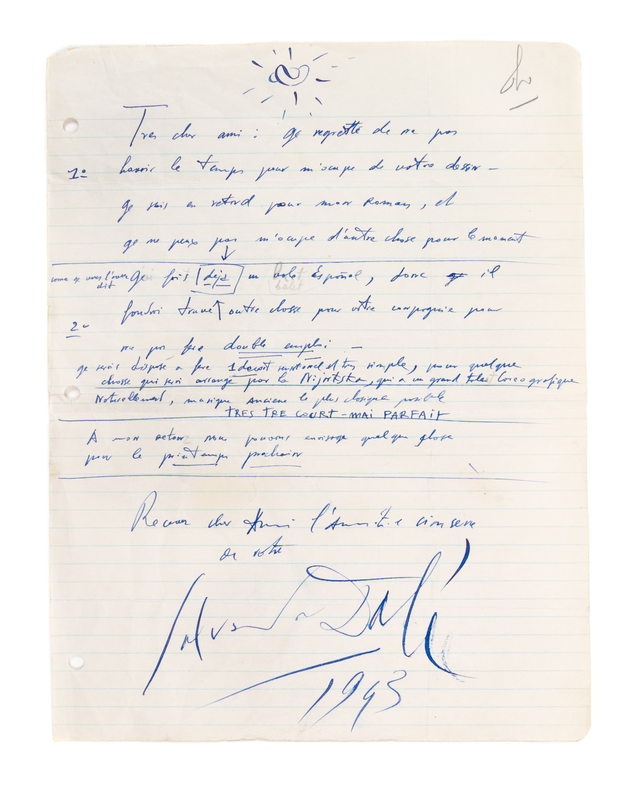 Tres cher ami : ge regrette de ne pas
1º havoir le temps pour m'ocupe de votre dessin –
ge suis en retard pour mon Roman, et
ge ne peux pas m'ocupe d'autre chose pour le moment
come ge vous l'avez dit ge fais déjà un balet Español, donc il
2º faudrai truve outre chosse pour votre compagnie pour
ne pas fere double emploi –
ge serai disposé a fere 1 décort simple, pour quelque
chosse qui serai arrangé par la Nijintska, qui a un grand talen Coreografique
Naturellement, musique anciene le plus clasique posible
TRES TRE COURT – MAI PARFAIT
A mon retour nous pouvons envisage quelque chose
pour le printemps prochain
Recever cher Ami l'Amitié sinsere
de votre
Salvador Dalí
1943